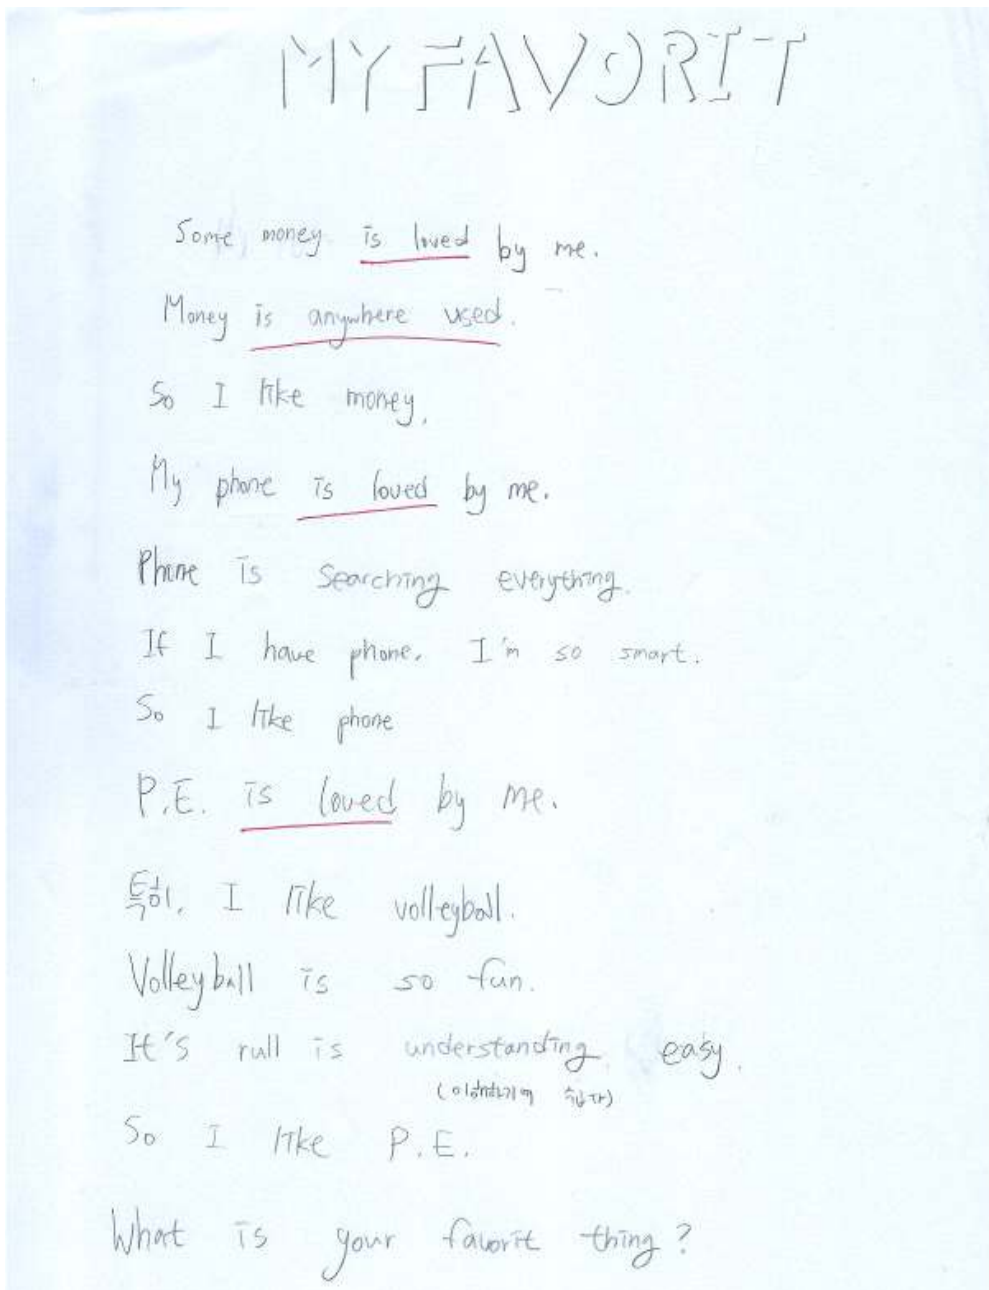 MY FAVORIT
Some money is loved by me.
Money is anywhere used.
So I like money,
My phone is loved by me.
Phone is searching everything.
If I have phone. I'm so smart.
So I like phone
P.E. is loved by me.
특히, I like volleyball.
Volleyball is so fun.
It's rull is understanding easy.
(이해하기에 쉽다)
So I like P.E.
What is your favorit thing?